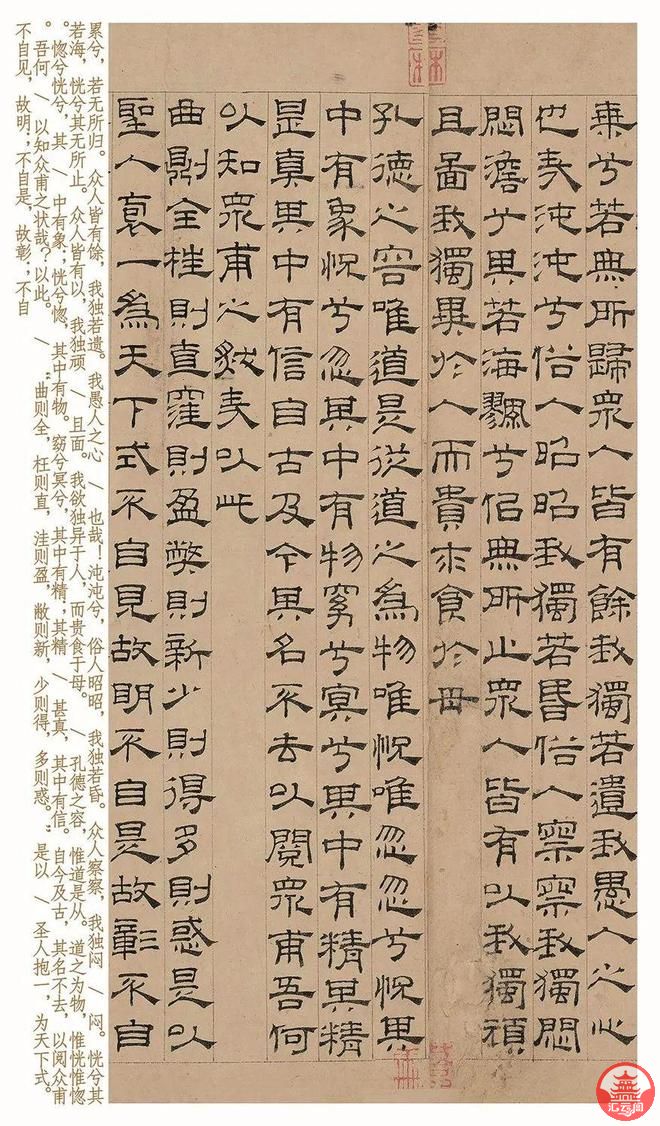 乗兮若無所歸衆人皆有餘我獨若遺我愚人之心
也哉沌沌兮俗人昭昭我獨若昏俗人察察我獨悶
悶澹兮其若海飂兮似無所止衆人皆有以我獨頑
且啚我獨異於人而貴求食於母
孔德之容唯道是從道之為物唯怳唯忽忽兮怳其
中有象怳兮忽其中有物窈兮冥兮其中有精其精
是真其中有信自古及今其名不去以閱衆甫吾何
以知衆甫之然哉以此
曲則全枉則直窪則盈弊則新少則得多則惑是以
聖人裒一為天下式不自見故明不自是故彰不自
累兮，若无所归。众人皆有馀，我独若遗。我愚人之心 \ 也哉！沌沌兮，俗人昭昭，我独若昏。众人察察，我独闷 \ 闷。恍兮其
若海，恍兮其无所止。众人皆有以，我独顽 \ 且面。我欲独异于人，而贵食于母。 \ 孔德之容，惟道是从。道之为物，惟恍惟惚
。惚兮恍兮，其 \ 中有象；恍兮惚，其中有物。窈兮冥兮，其中有精；其精 \ 甚真，其中有信。自今及古，其名不去，以阅众甫
。吾何 \ 以知众甫之状哉？以此。 \ “曲则全，枉则直，洼则盈，敝则新，少则得，多则惑。”是以 \ 圣人抱一，为天下式。
不自见，故明；不自是，故彰；不自
汇云阁